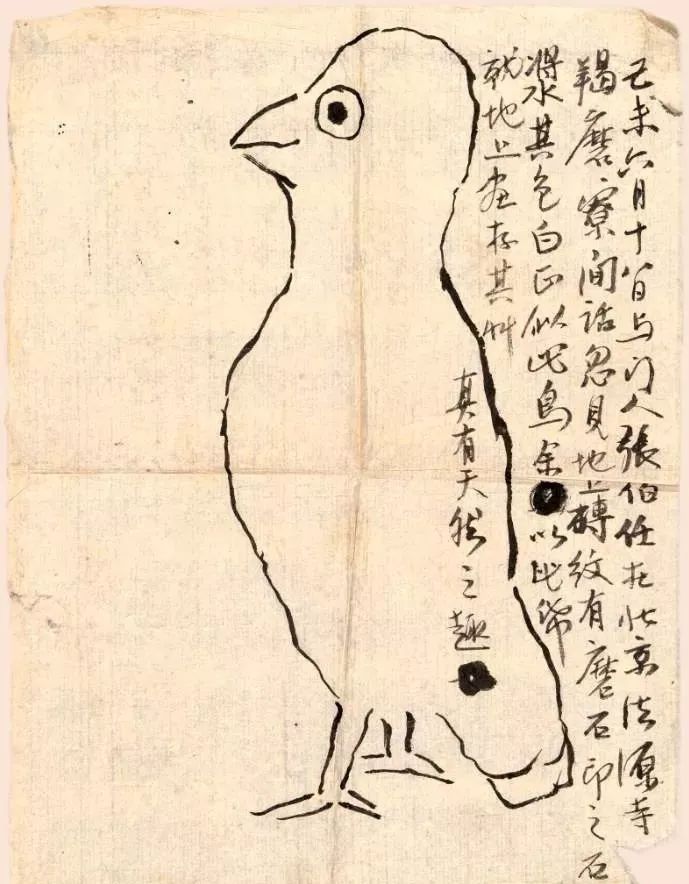 己未六月十八日与門人張伯任在北京法源寺
羯磨寮閒話忽見地上磚紋有磨石印之石
漿其色白正似此鳥余以此帋
就地上畫存其艸
真有天然之趣